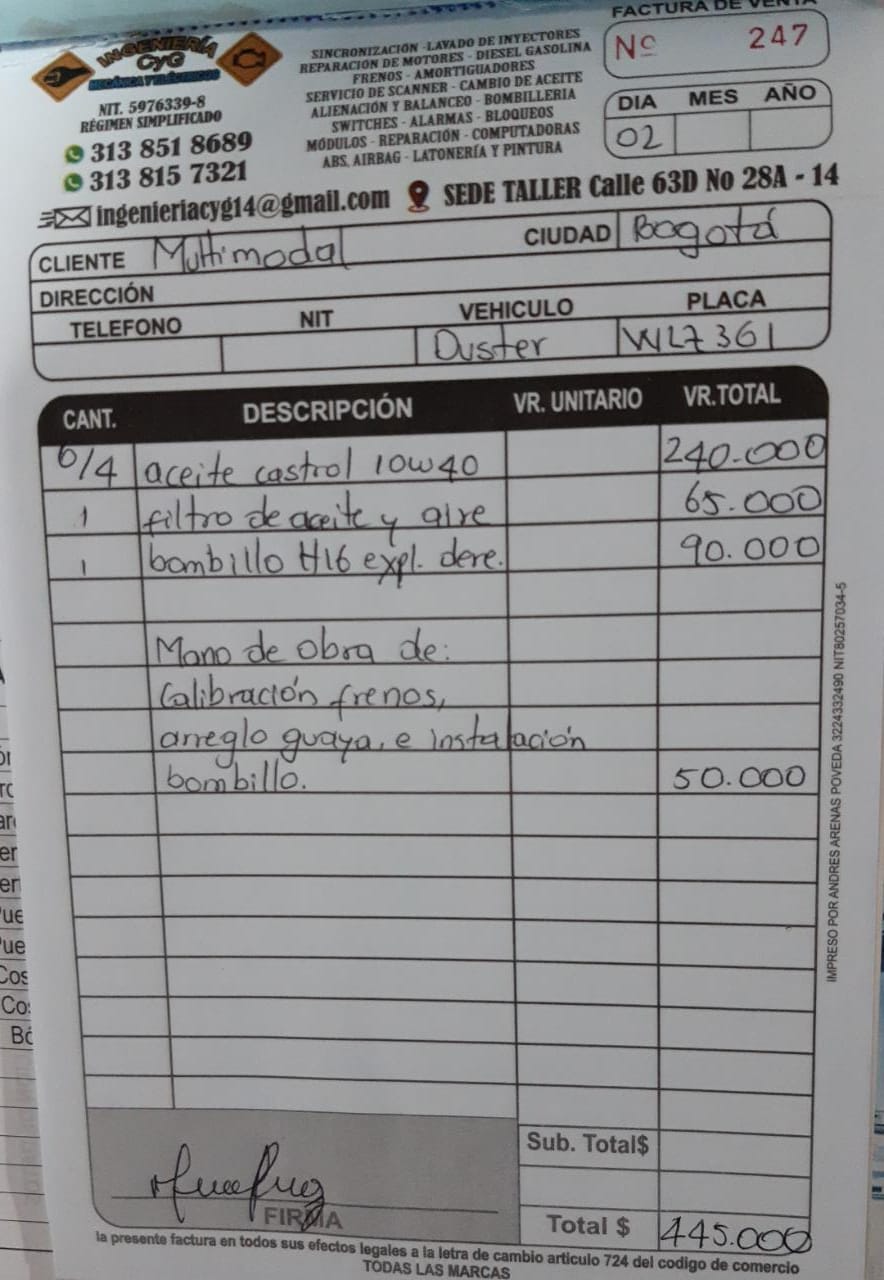 FACTURA DE VENTA
Nº 247
INGENIERÍA
CyG
MECÁNICA Y ELÉCTRICOS
NIT. 5976339-8
RÉGIMEN SIMPLIFICADO
313 851 8689
313 815 7321
SINCRONIZACIÓN -LAVADO DE INYECTORES
REPARACIÓN DE MOTORES - DIESEL GASOLINA
FRENOS - AMORTIGUADORES
SERVICIO DE SCANNER - CAMBIO DE ACEITE
ALIENACIÓN Y BALANCEO - BOMBILLERIA
SWITCHES - ALARMAS - BLOQUEOS
MÓDULOS - REPARACIÓN - COMPUTADORAS
ABS, AIRBAG - LATONERÍA Y PINTURA
DIA MES AÑO
02
ingenieriacyg14@gmail.com SEDE TALLER Calle 63D No 28A - 14
CLIENTE Multimodal CIUDAD Bogotá
DIRECCIÓN
TELEFONO NIT VEHICULO PLACA
Duster WLZ361
CANT. DESCRIPCIÓN VR. UNITARIO VR.TOTAL
6/4 aceite castrol 10w40 240.000
1 filtro de aceite y aire 65.000
1 bombillo H16 expl. dere. 90.000
Mano de obra de:
Calibración frenos,
arreglo guaya, e instalación
bombillo. 50.000
Sub. Total$
FIRMA
Total $ 445.000
la presente factura en todos sus efectos legales a la letra de cambio articulo 724 del codigo de comercio
TODAS LAS MARCAS
IMPRESO POR ANDRES ARENAS POVEDA 3224332490 NIT80257034-5